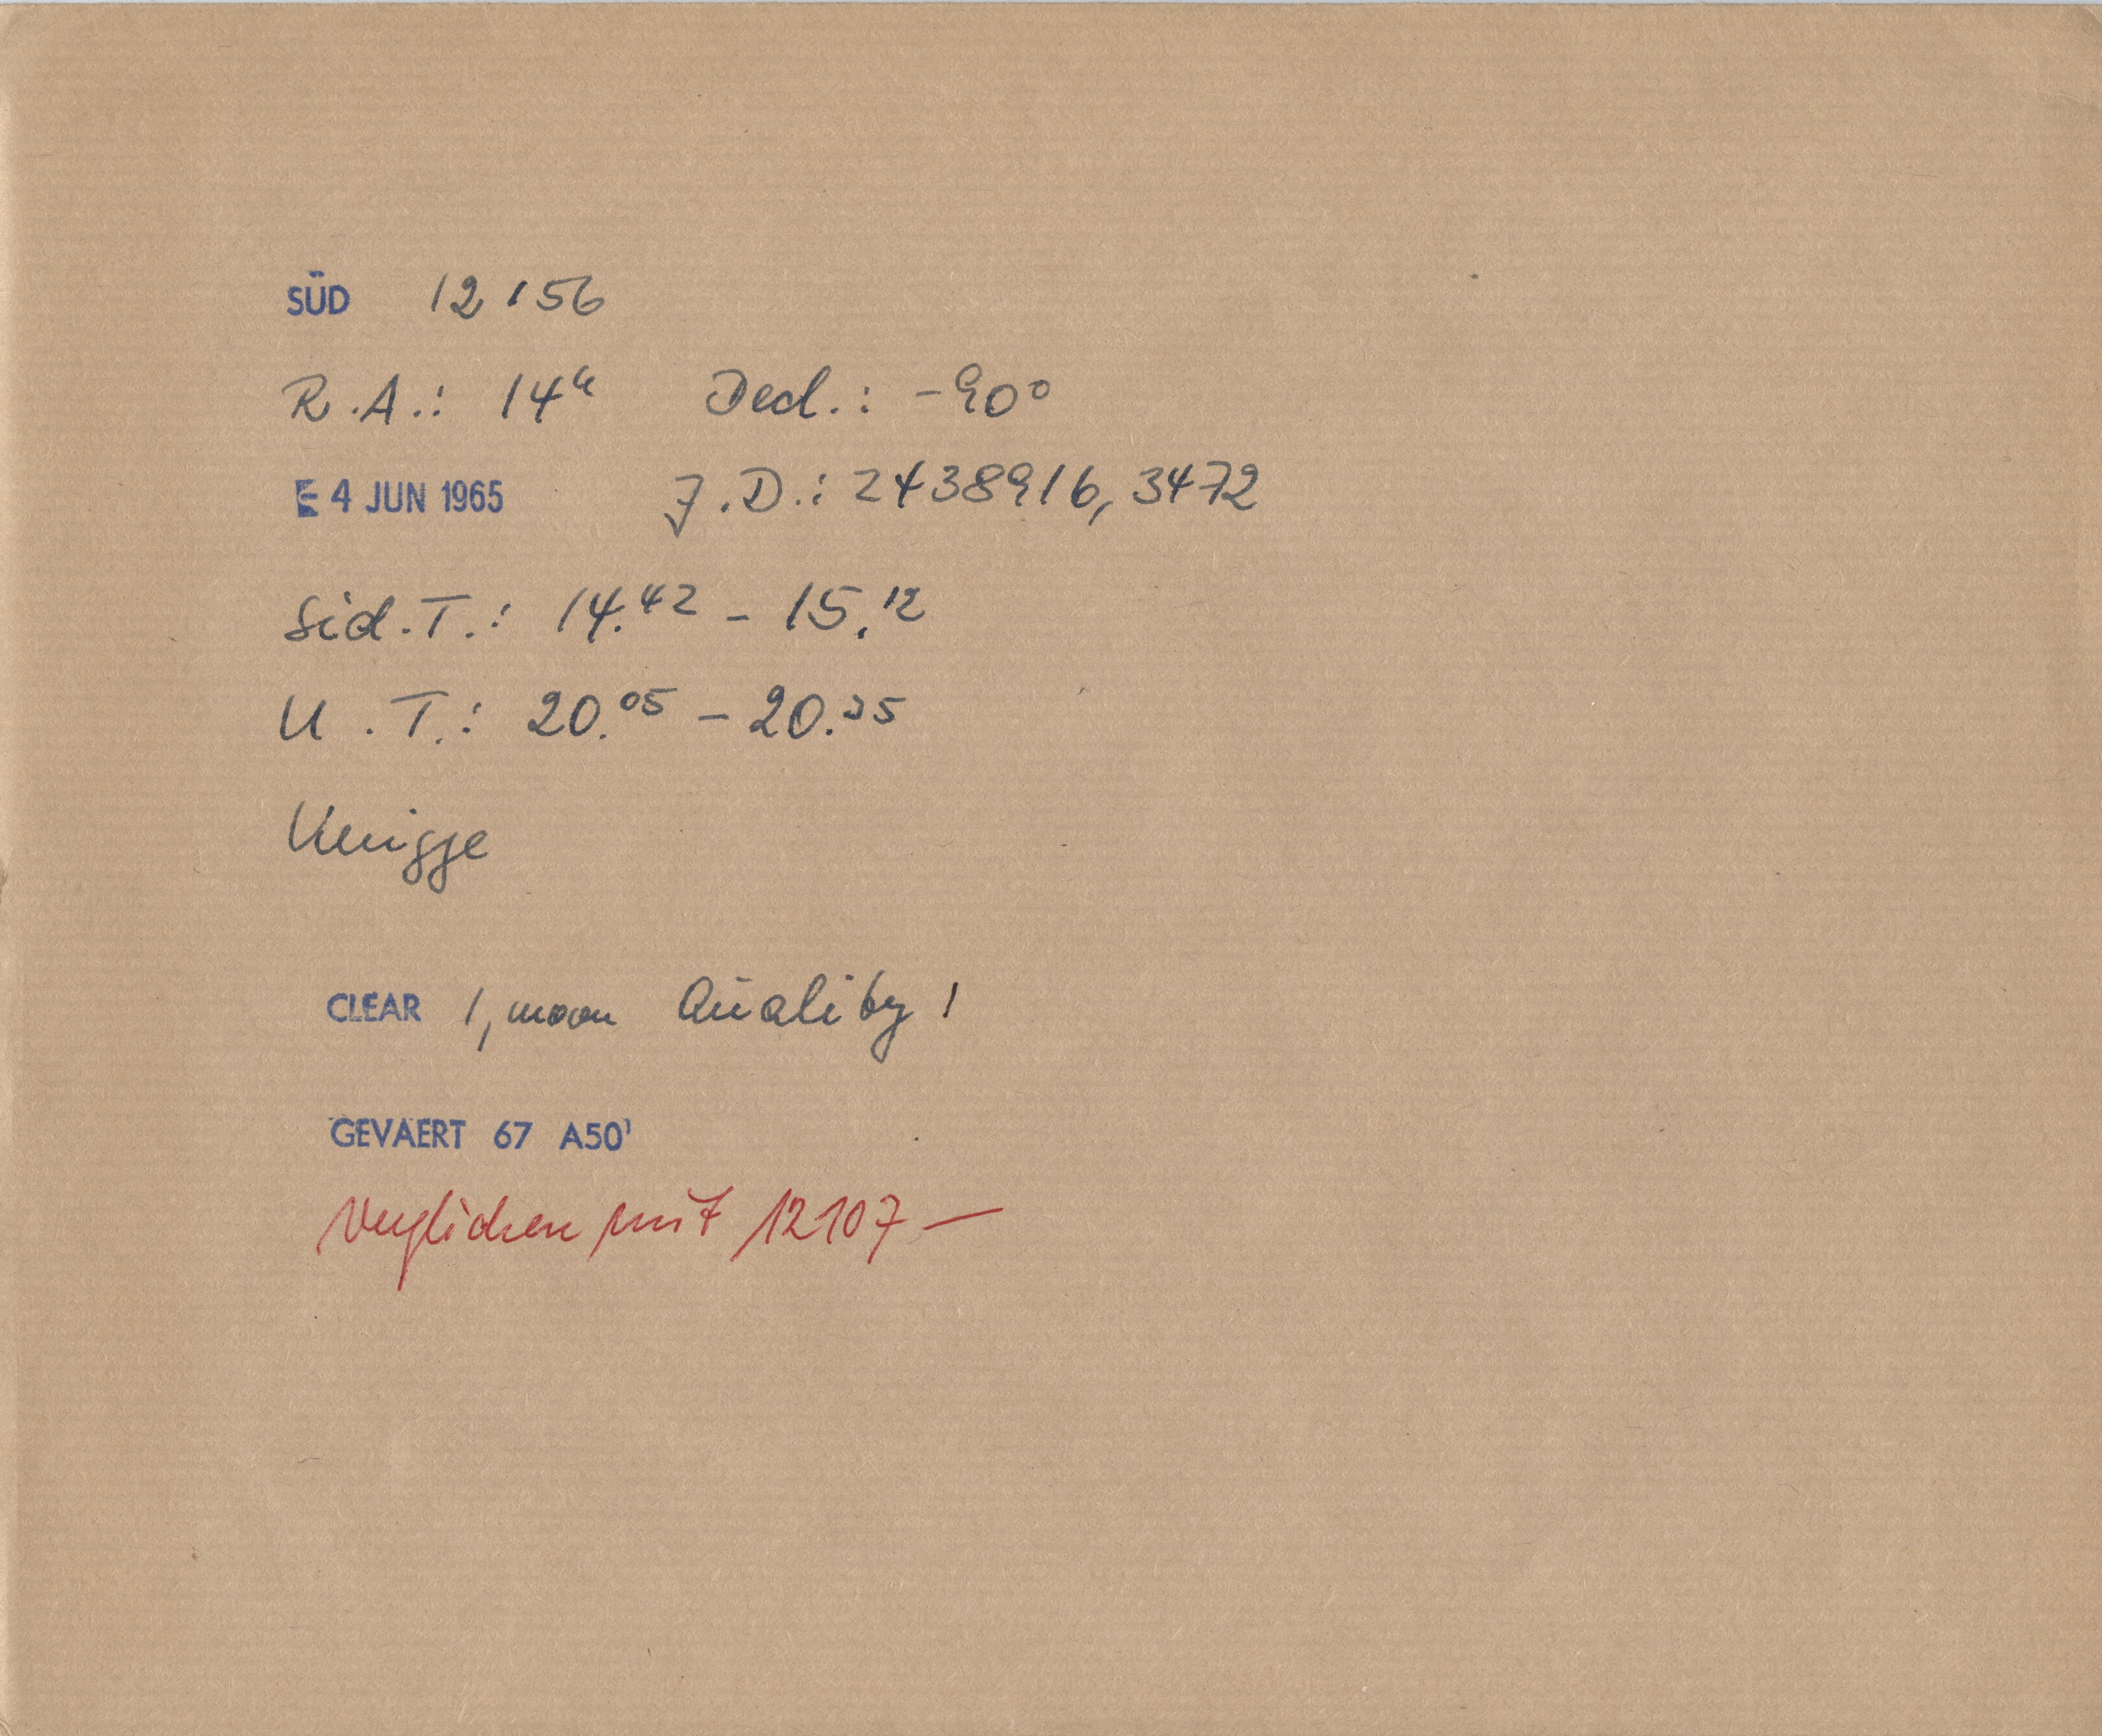 SÜD 12156
R.A.: 14ʰ Decl.: -90°
E 4 JUN 1965 J.D.: 2438916,3472
Sid.T.: 14.⁴² - 15.¹²
U.T.: 20.⁰⁵ - 20.³⁵
Knigge
CLEAR 1, moon Quality 1
GEVAERT 67 A50'
Verglichen mit 12107 —